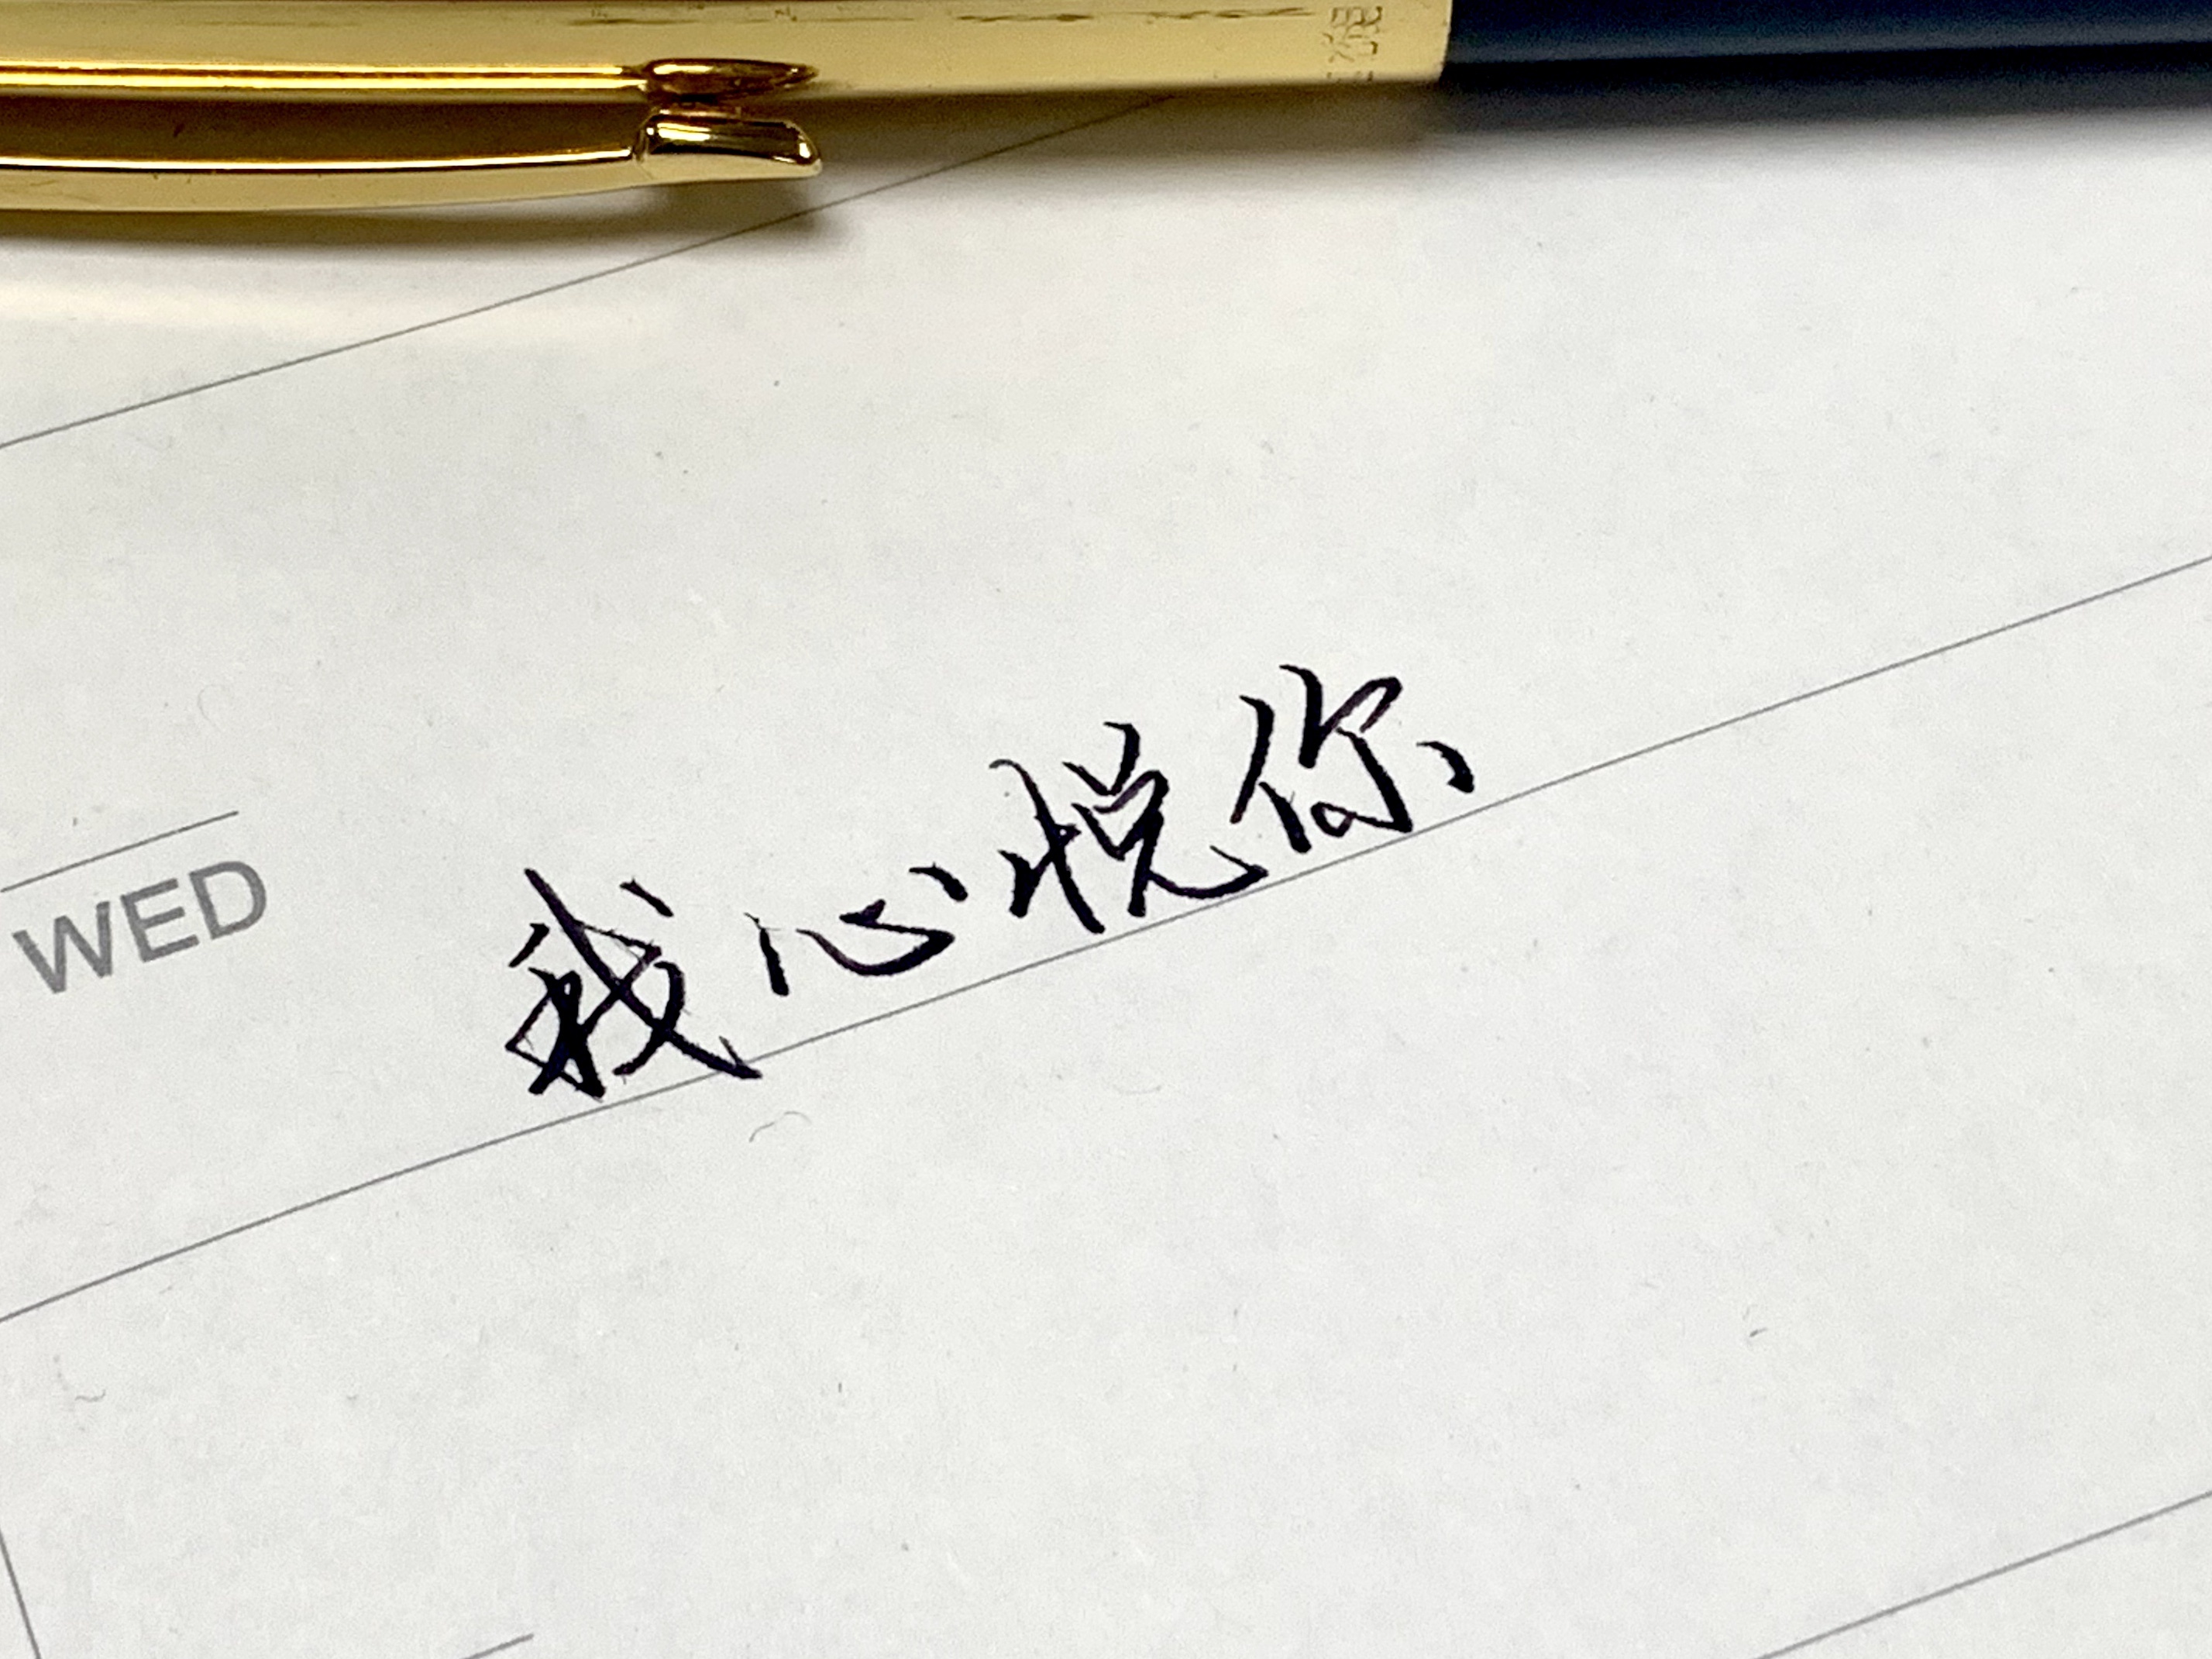 WED
我心悦你